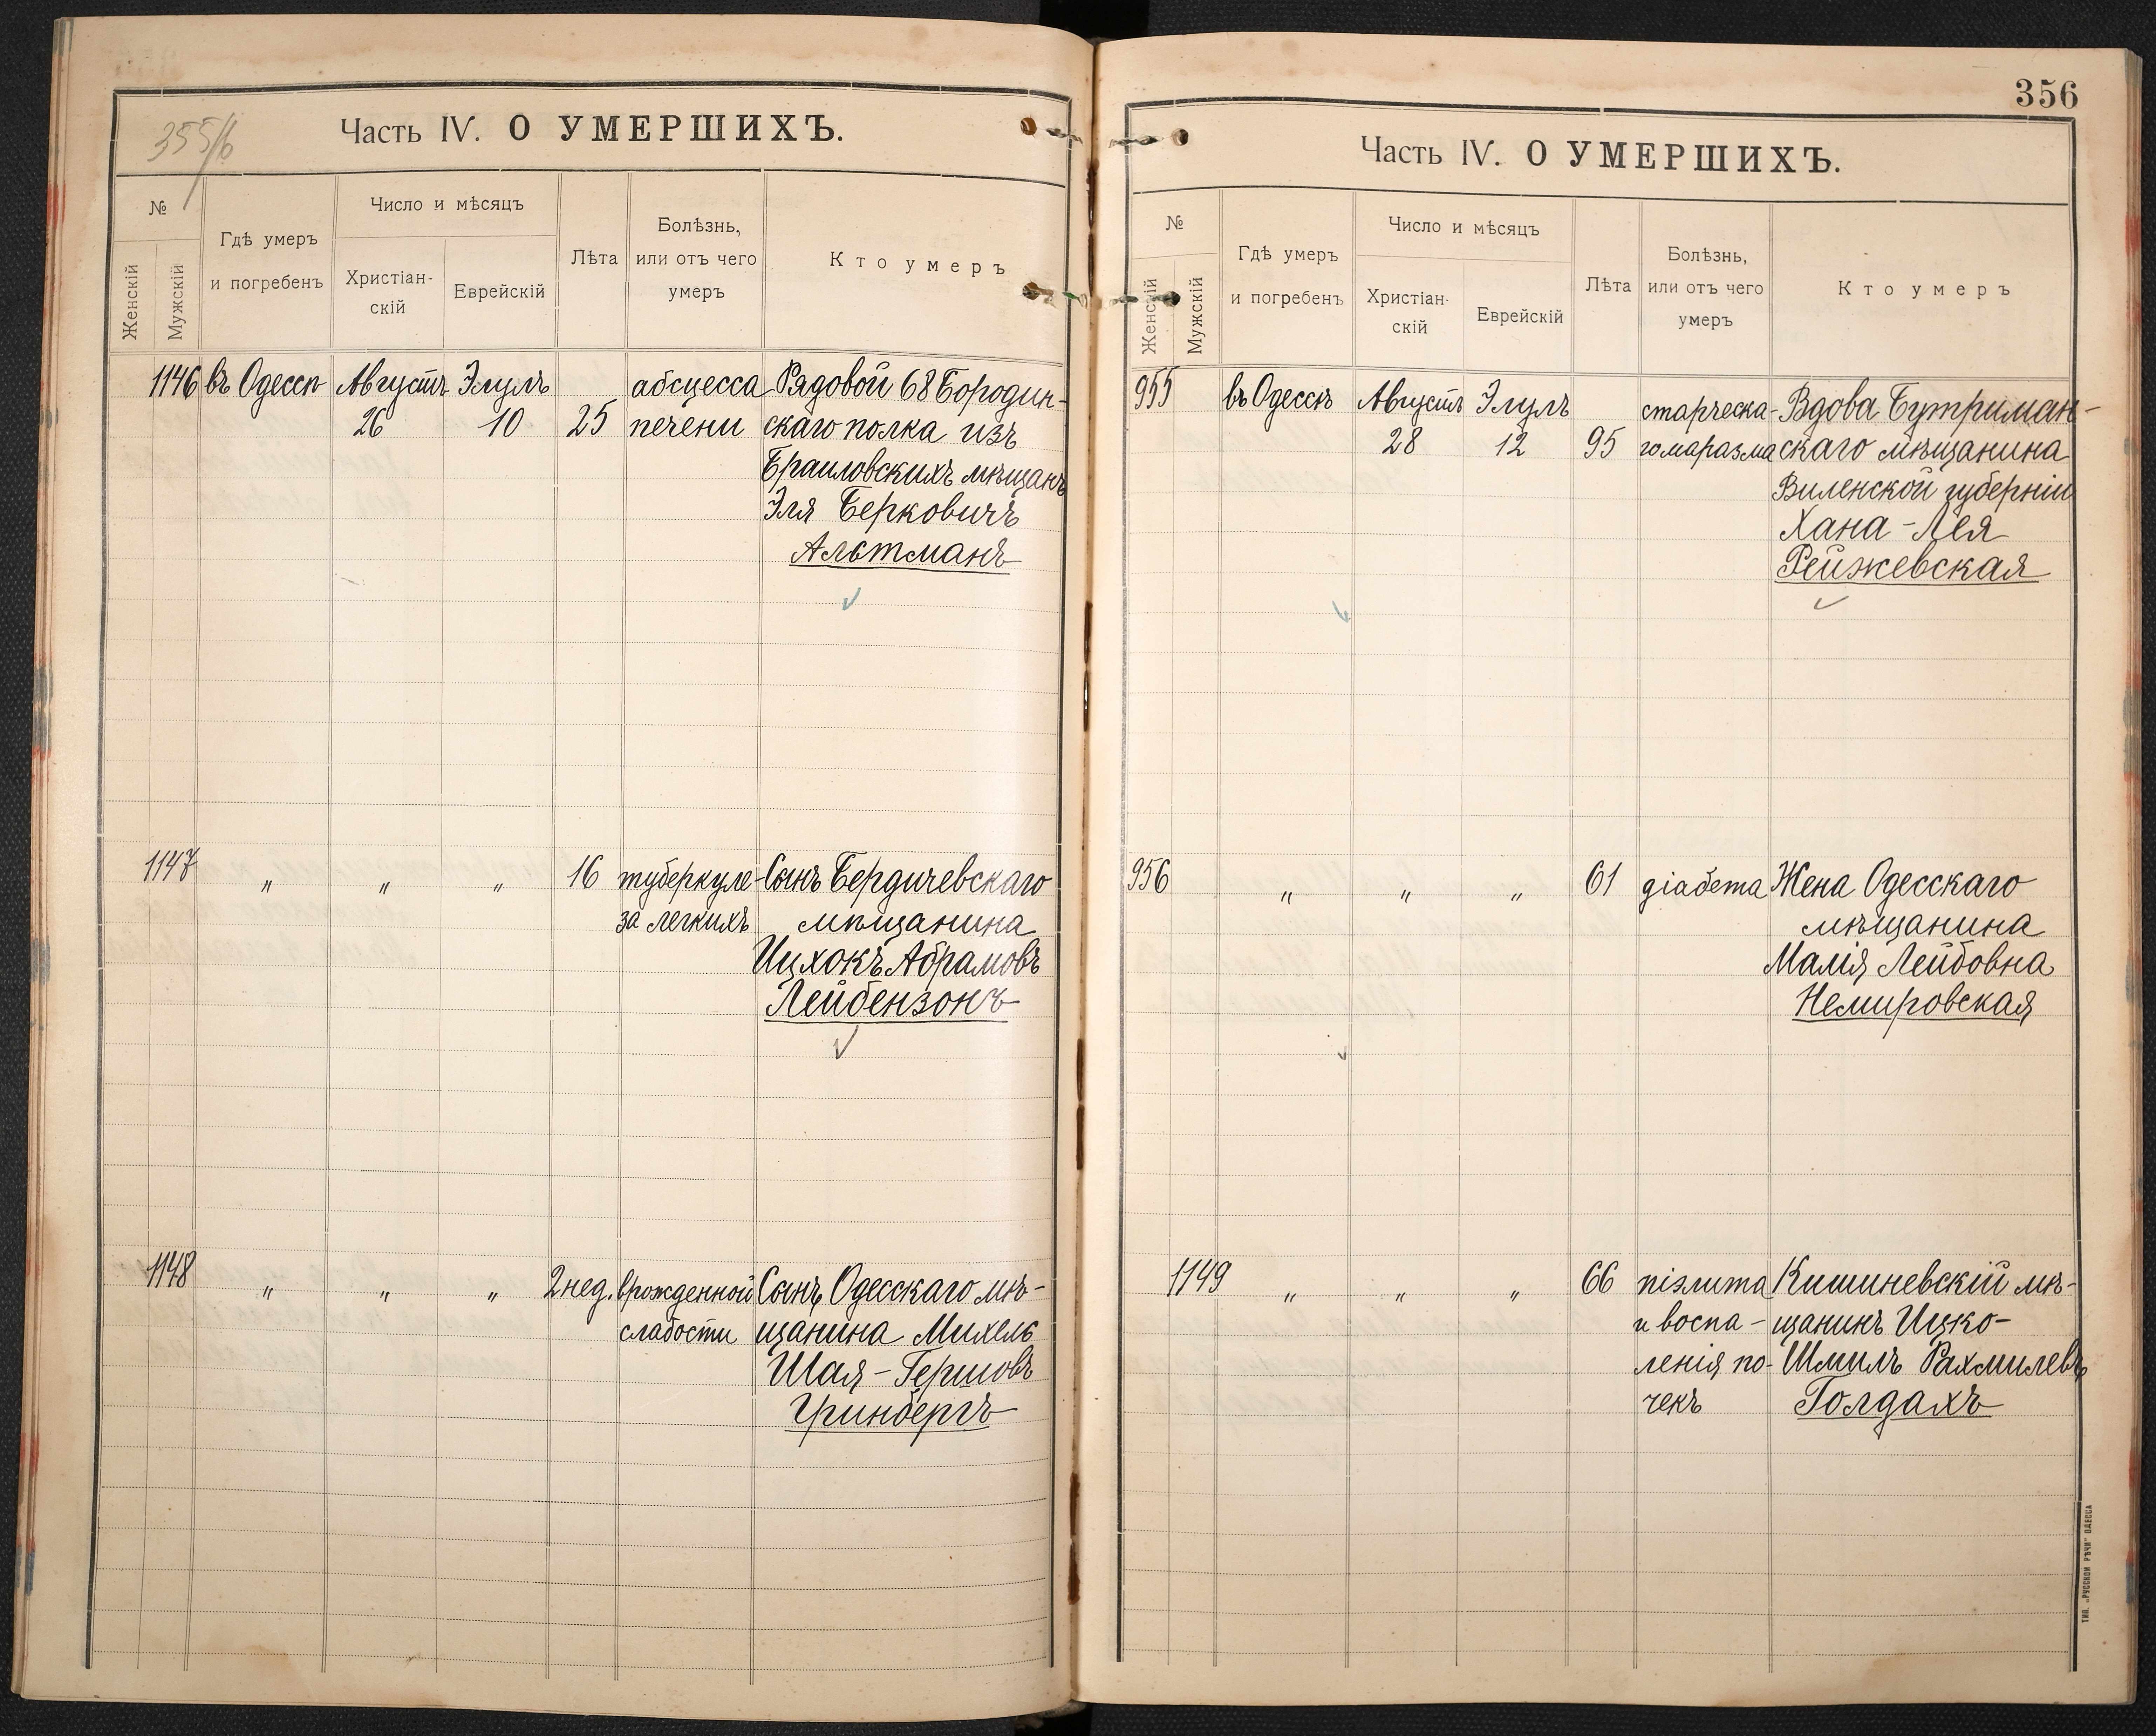 355/6
Часть IV. О УМЕРШИХЪ.
№
Женскій
Мужскій
Гдѣ умеръ
и погребенъ
Число и мѣсяцъ
Христіан-
скій
Еврейскій
Лѣта
Болѣзнь,
или отъ чего
умеръ
Кто умеръ
1146 въ Одессѣ Августъ Элулъ абсцесса Рядовой 68 Бородин-
26 10 25 печени скаго полка изъ
Браиловскихъ мѣщанъ
Эля Берковичъ
Альтманъ
1147 " " " 16 туберкуле- Сынъ Бердичевскаго
за легкихъ мѣщанина
Ицхокъ Абрамовъ
Лейбензонъ
1148 " " " 2 нед. врожденной Сынъ Одесскаго мѣ-
слабости щанина Михель
Шая-Гершовъ
Гринбергъ
356
Часть IV. О УМЕРШИХЪ.
№
Женскій
Мужскій
Гдѣ умеръ
и погребенъ
Число и мѣсяцъ
Христіан-
скій
Еврейскій
Лѣта
Болѣзнь,
или отъ чего
умеръ
Кто умеръ
955 въ Одессѣ Августъ Элулъ старческа- Вдова Бутриман-
28 12 95 го маразма скаго мѣщанина
Виленской губерніи
Хана-Лея
Рейжевская
956 " " " 61 діабета Жена Одесскаго
мѣщанина
Малія Лейбовна
Немировская
1149 " " " 66 піэлита Кишиневскій мѣ-
и воспа- щанинъ Ицко-
ленія по- Шмилъ Рахмилевъ
чекъ Голдахъ
ТИП. „РУССКОЙ РѢЧИ" ОДЕССА